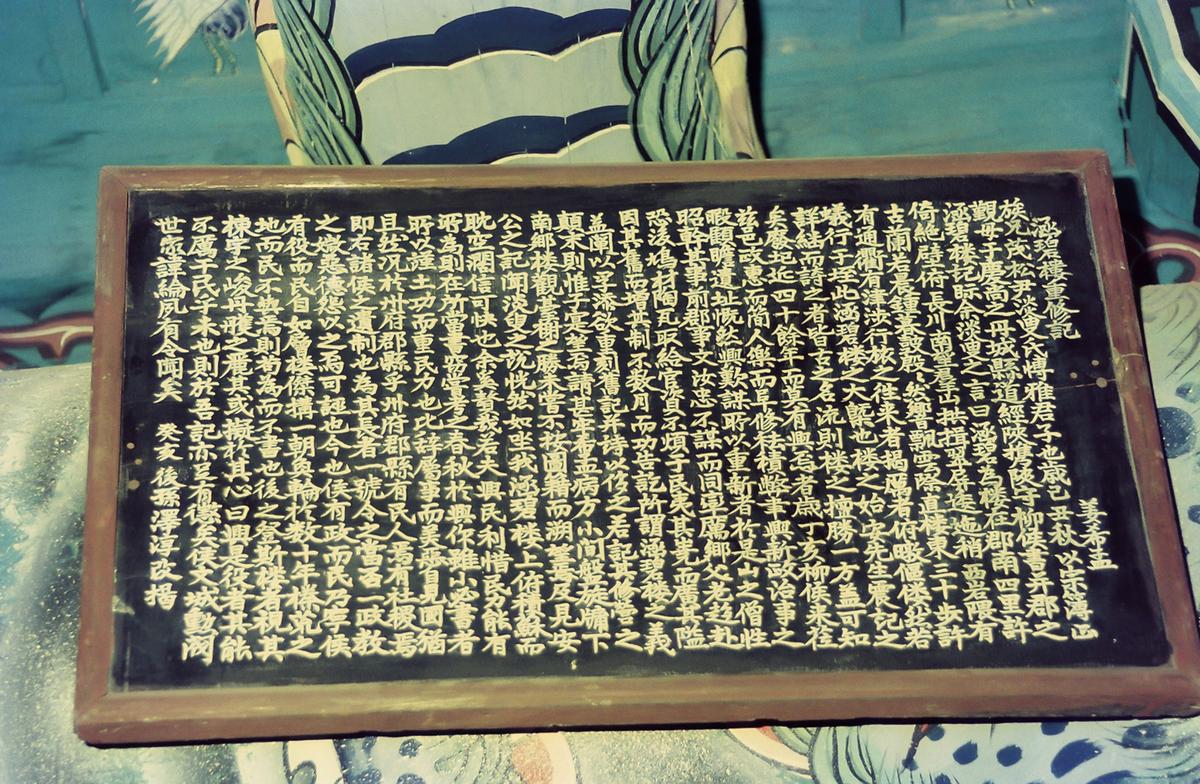 涵碧樓重修記
姜希孟
族兄茂松尹淡叟氏博雅君子也歲己丑秋以
觀母于慶尚之丹城縣道經陜樓陜守柳侯書弁郡之
涵碧樓記眎余淡叟之言曰涵碧爲樓在郡南四里許
倚絶壁俯長川南望羣山拱揖翠屏逶迤稍西巖隈有
古蘭若晨鍾暮鼓殷然響飄雲際直樓東三十步許
有通衢有津涉行旅之徃來者揭厲者俯睨偃傺於若
蟻行于垤此涵碧樓之大槩也樓之始末先生震記之
詳結而詩之者皆古之名流則樓之擅勝一方盖可知
矣廢圮近四十餘年而莫有興志者歲丁亥柳候来莅
玆邑政惠而簡人樂而阜修祛積弊事興新政治事之
暇覽瞻遺址慨然興歎謀所以重新者於是山之僧性
昭幹其事前郡事文汝忠不謀而同率厲鄕父老赴
於後鳩材陶瓦取給官資不煩于民夷其荒而廣其隘
因其舊而增其制不數月而功告訖所謂涵碧樓之義
盖蘭以子添欲重刻舊記并詩以侈之若記其修營之
顛末則惟子寔 爲請甚牢希孟病方小間般 牖下
南鄕樓觀臺榭之勝未嘗不按圖籍而溯 及見安
公之記聞淡叟之說恍然如坐我涵碧樓上俯積蘇而
眈空濶信可快也余奚 哉若夫興民利惜民力能有
所爲則在所當書窃嘗考之春秋於興作雖小必書者
所以謹土功而重民力也比辭屬事而美惡自見固猶
且然况於州府郡縣乎州府郡縣有民人焉有社稷焉
即古諸侯之遺制也爲其長者一號令之當否一政教
之 慝德怨以之焉可誣也今也侯有政而民 寧侯
有役而民自如層樓傑搆一朝奐輪於數十年榛荒之
地而民不與焉則曷爲而不書也後之登斯樓者視其
棟宇之峻丹雘之麗其或擬於其心曰興是役者其能
不厲于民乎未也則於吾記亦足有徵矣侯文城勳閥
世家詳綸夙有令聞矣 癸亥後孫澤淳改揭